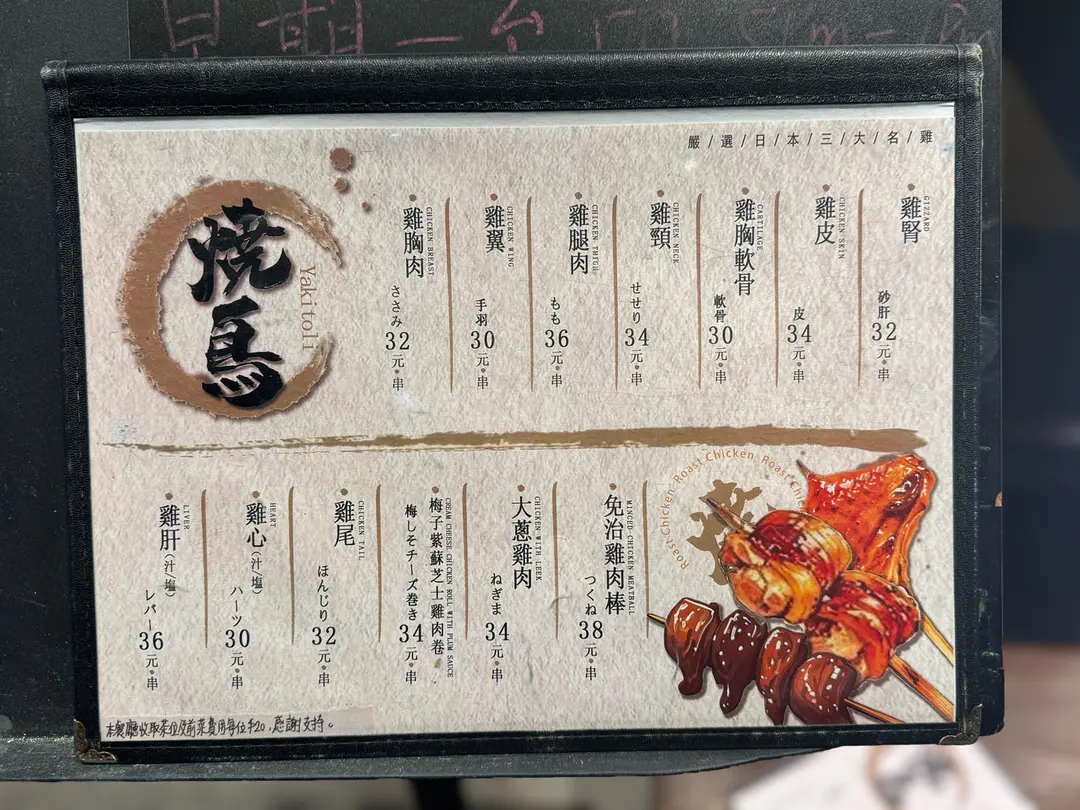 早期一台
嚴/選/日/本/三/大/名/雞
燒鳥
Yakitoli
雞腎
GIZZARD
砂肝
32元•串
雞皮
CHICKEN SKIN
皮
34元•串
雞胸軟骨
CARTILAGE
軟骨
30元•串
雞頸
CHICKEN NECK
せせり
34元•串
雞腿肉
CHICKEN THIGH
もも
36元•串
雞翼
CHICKEN WING
手羽
30元•串
雞胸肉
CHICKEN BREAST
ささみ
32元•串
免治雞肉棒
MINCED CHICKEN MEATBALL
つくね
38元•串
大蔥雞肉
CHICKEN WITH LEEK
ねぎま
34元•串
梅子紫蘇芝士雞肉卷
CREAM CHEESE CHICKEN ROLL WITH PLUM SAUCE
梅しそチーズ巻き
34元•串
雞尾
CHICKEN TAIL
ほんじり
32元•串
雞心(汁/塩)
HEART
ハーツ
30元•串
雞肝(汁/塩)
LIVER
レバー
36元•串
Roast Chicken · Roast Chicken · Roast Chicken
本餐廳收取茶位及前菜費用每位$20,感謝支持。